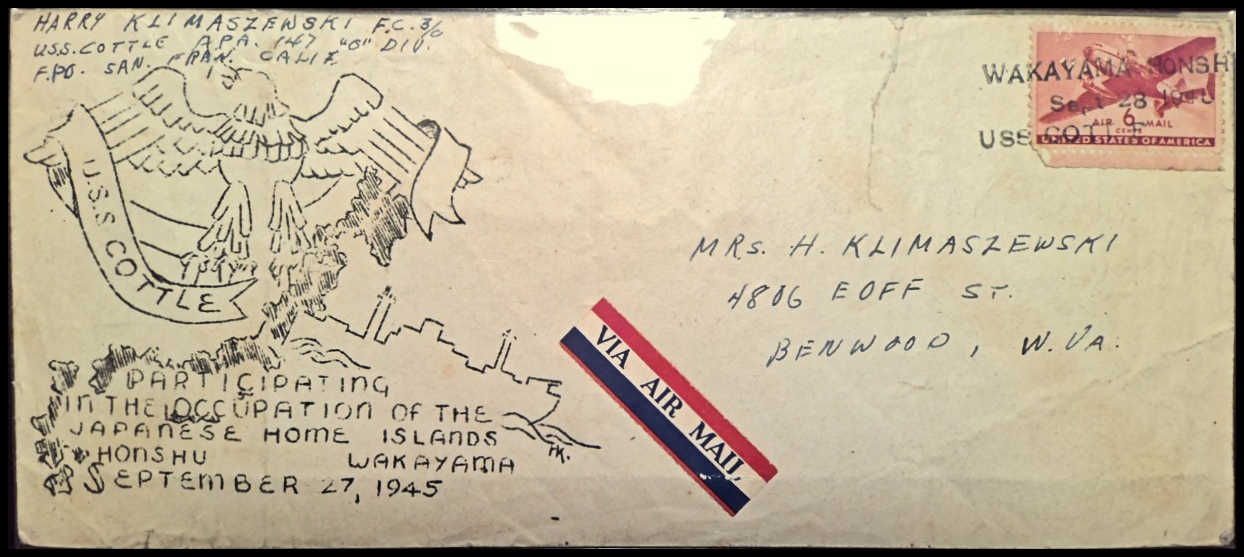 HARRY KLIMASZEWSKI F.C. 3/c
U.S.S. COTTLE A.P.A. 147 "O" DIV.
F.P.O. SAN. FRAN. CALIF.
WAKAYAMA HONSH
Sept 28 1945
USS COTTLE
AIR 6 MAIL
CENTS
UNITED STATES OF AMERICA
U.S.S. COTTLE
MRS. H. KLIMASZEWSKI
4806 EOFF ST.
BENWOOD, W. VA.
VIA AIR MAIL
PARTICIPATING
IN THE OCCUPATION OF THE
JAPANESE HOME ISLANDS
HONSHU WAKAYAMA
SEPTEMBER 27, 1945
HK.